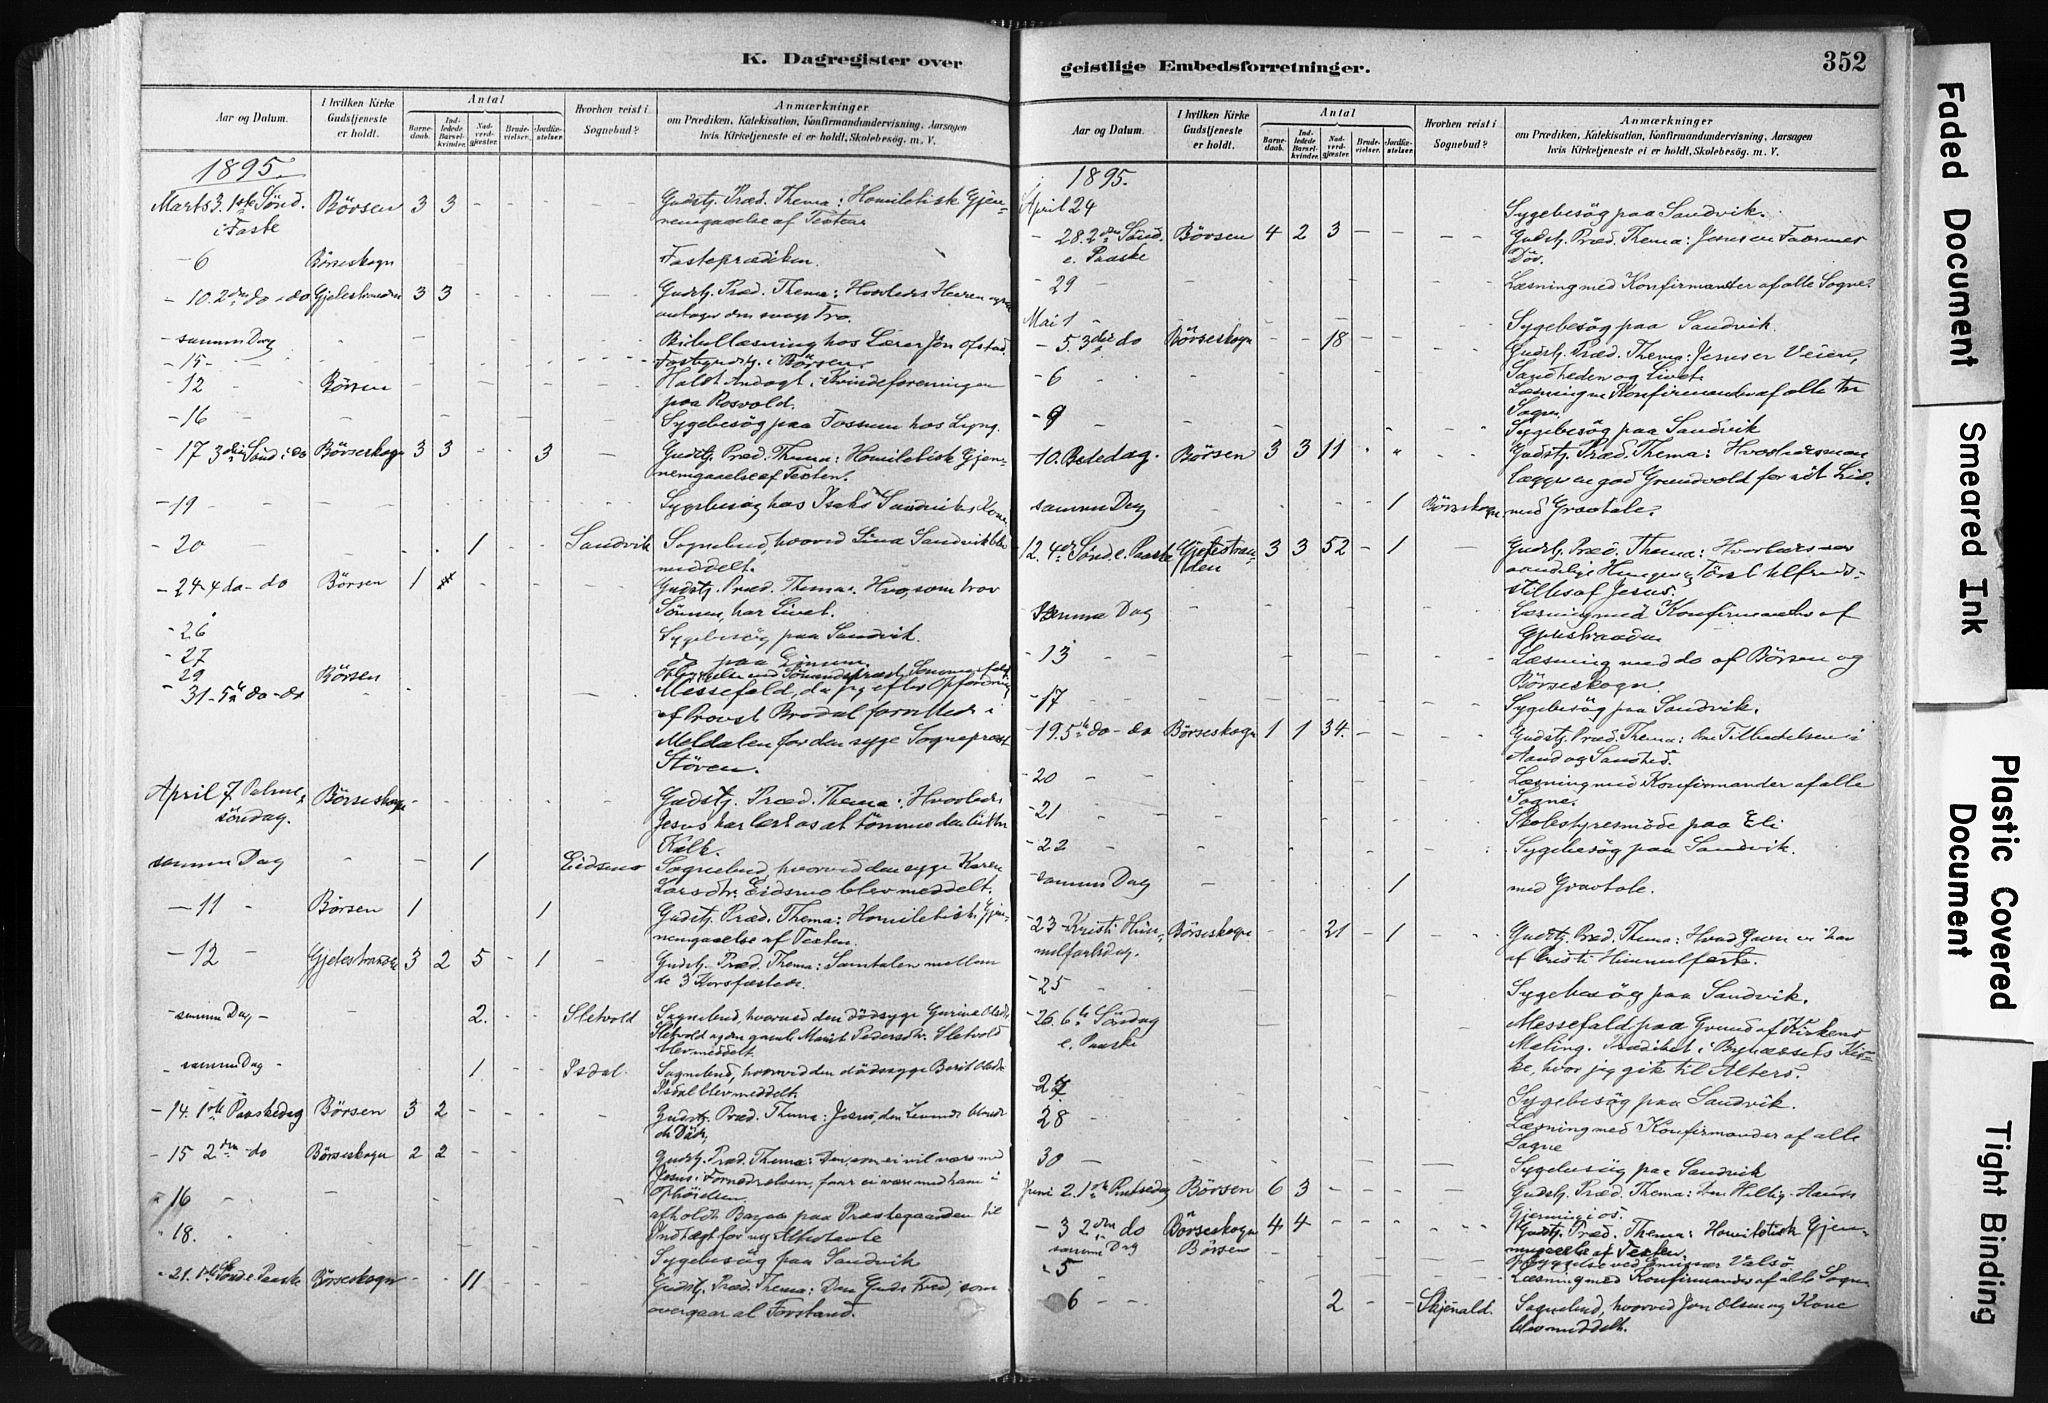 K. Dagregister over
Aar og Datum.
I hvilken Kirke Gudstjeneste er holdt.
Antal
Barnedaab.
Indledede Barselkvinder.
Nadverdgjæster.
Brudevielser.
Jordfæstelser.
Hvorhen reist i Sognebud?
Anmærkninger
om Prædiken, Katekisation, Konfirmandundervisning, Aarsagen
hvis Kirketjeneste ei er holdt, Skolebesög. m. V.
1895.
Marts 3. 1ste Sönd. Börsen 3 3 - - - Gudstj. Præd. Thema: Homiletisk Gjen-
i Faste nemgaaelse af Texten
- 6 Börseskogn Fasteprædiken.
- 10. 2den do - do Gjelestranden 3 3 - - - Gudstj. Præd. Thema: Hvorledes Herren
antager den svage Tro.
- samme Dag Bibellæsning hos Lærer Jön Ofstad.
- 15 - Fastegudstj. i Börsen.
- 12 Börsen Holdt Andagt i Kvindeforeningen
paa Rosvold.
- 16 Sygebesög paa Fossum hos Lyng.
- 17 3die Sönd. i do Börseskogn 3 3 - - 3 - Gudstj. Præd. Thema: Homiletisk Gjen-
nemgaaelse af Texten.
- 19 - Sygebesög hos Isak Sandviks Kone
- 20 1 Sandvik Sognebud, hvorved Lina Sandvik blev
meddelt.
- 24 4 do - do Börsen 1 Gudstj. Præd. Thema: Hvo, som tror
Sönnen, har Livet.
- 26 Sygebesög paa Sandvik.
- 27 do paa
- 29 Börsen
- 31. 5te do - do Messefald, da jeg efter Opfordring
af Provst Brodal forrettede i
Meldalen for den syge Sogneprest
Stören.
April 7 Palme- Börseskogn Gudstj. Præd. Thema: Hvorledes
söndag. Jesus har lært os at tömme den bittre
Kalk.
samme Dag 1 Eidsmo Sognebud, hvorved den syge Karen
Larsdtr. Eidsmo blev meddelt.
- 11 - Börsen 1 1 Gudstj. Præd. Thema: Homiletisk Gjen-
nemgaaelse af Texten.
- 12 - Gjelestranden 3 2 5 - 1 - Gudstj. Præd. Thema: Samtalen mellem
de 3 Korsfæstede.
- samme Dag - 2. - Sletvold Sognebud, hvorved den dödssyge Gurine Olsdtr.
Sletvold og den gamle Marit Pedersdtr. Sletvold
blev meddelt.
- samme Dag - 1 Isdal. Sognebud, hvorved den dödssyge Berit Olsdtr.
Isdal blev meddelt.
- 14. 1ste Paaskedag Börsen 3 2 - - - Gudstj. Præd. Thema: Jesus, den Levende blandt
de Döde.
- 15 2den do Börseskogn 2 2 - - - Gudstj. Præd. Thema: Den, som ei vil være med
Jesus i Fornedrelsen, faar ei være med ham i
Ophöielsen
" 16 afholdt Bazar paa Præstegaarden til
Indtægt for ny Altertavle
" 18. Sygebesög paa Sandvik
" 21. 1ste Sönd e. Paaske Börseskogn - - 11 - - Gudstj. Præd. Thema: Den Guds Fred, som
overgaar al Forstand.
geistlige Embedsforretninger.
352
Aar og Datum.
I hvilken Kirke Gudstjeneste er holdt.
Antal
Barnedaab.
Indledede Barselkvinder.
Nadverdgjæster.
Brudevielser.
Jordfæstelser.
Hvorhen reist i Sognebud?
Anmærkninger
om Prædiken, Katekisation, Konfirmandundervisning, Aarsagen
hvis Kirketjeneste ei er holdt, Skolebesög. m. V.
1895.
April 24 Sygebesög paa Sandvik.
- 28. 2den Sönd. Börsen 4 2 3 - - Gudstj. Præd. Thema: Jesus en Faarenes
e. Paaske Dör.
- 29 - Læsning med Konfirmanter af alle Sogne.
Mai 1 - Sygebesög paa Sandvik.
- 5. 3die do Börseskogn - - 18 - - Gudstj. Præd. Thema: Jesus er Veien,
Sandheden og Livet.
- 6 Læsning m. Konfirmander af alle tre
Sogne.
- 9 Sygebesög paa Sandvik
- 10. Bededag. Börsen 3 3 11 Gudstj. Præd. Thema: Hvorledes man
lægger en god Grundvold for sit Liv.
samme Dag 1 Börseskogn med Gravtale.
12. 4de Sönd. e. Paaske Gjelestranden 3 3 52 - 1 - Gudstj. Præd. Thema: Hvorledes vor
aandelige Hunger og Törst tilfreds-
stilles af Jesus.
Samme Dag Læsning med Konfirmander af
Gjelestranden
- 13 Læsning med do af Börsen og
Börseskogn.
- 17 Sygebesög paa Sandvik.
- 19. 5te do - do Börseskogn 1 1 34. - - Gudstj. Præd. Thema: Om Tilbedelsen i
Aand og Sandhed.
- 20 Læsning med Konfirmander af alle
Sogne.
- 21 Skolestyresmöde paa Eli
- 22 Sygebesög paa Sandvik.
samme Dag 1 med Gravtale.
- 23 - Kristi Him- Börseskogn 21 - 1 Gudstj. Præd. Thema: Hvad Gavn vi har
melfartsdag. af Cristi Himmelfart.
- 25 Sygebesög paa Sandvik.
- 26. 6te Söndag Messefald paa Grund af Kirkens
e. Paaske Maling. Prædiket i Bynæssets Kir-
ke, hvor jeg gik til Alters.
- 27 Sygebesög paa Sandvik.
- 28 Læsning med Konfirmander af alle
Sogne
- 30 - Sygebesög paa Sandvik
Juni 2. 1ste Pintsedag Börsen 6 3 - - - Gudstj. Præd. Thema: Den Hellig-Aands
Gjerning i os.
- 3 2den do Börseskogn 4 4 - Gudstj. Præd. Thema: Homiletisk Gjen-
nemgaaelse af Texten.
samme Dag Börsen Opbyggelse ved Emissær Valsö
" 5 Læsning med Konfirmander af alle Sogne
6 - - 2 - - Skjenald. Sognebud, hvorved Jon Olsen og Kone
blev meddelt.
Faded Document
Smeared Ink
Plastic Covered
Document
Tight Binding